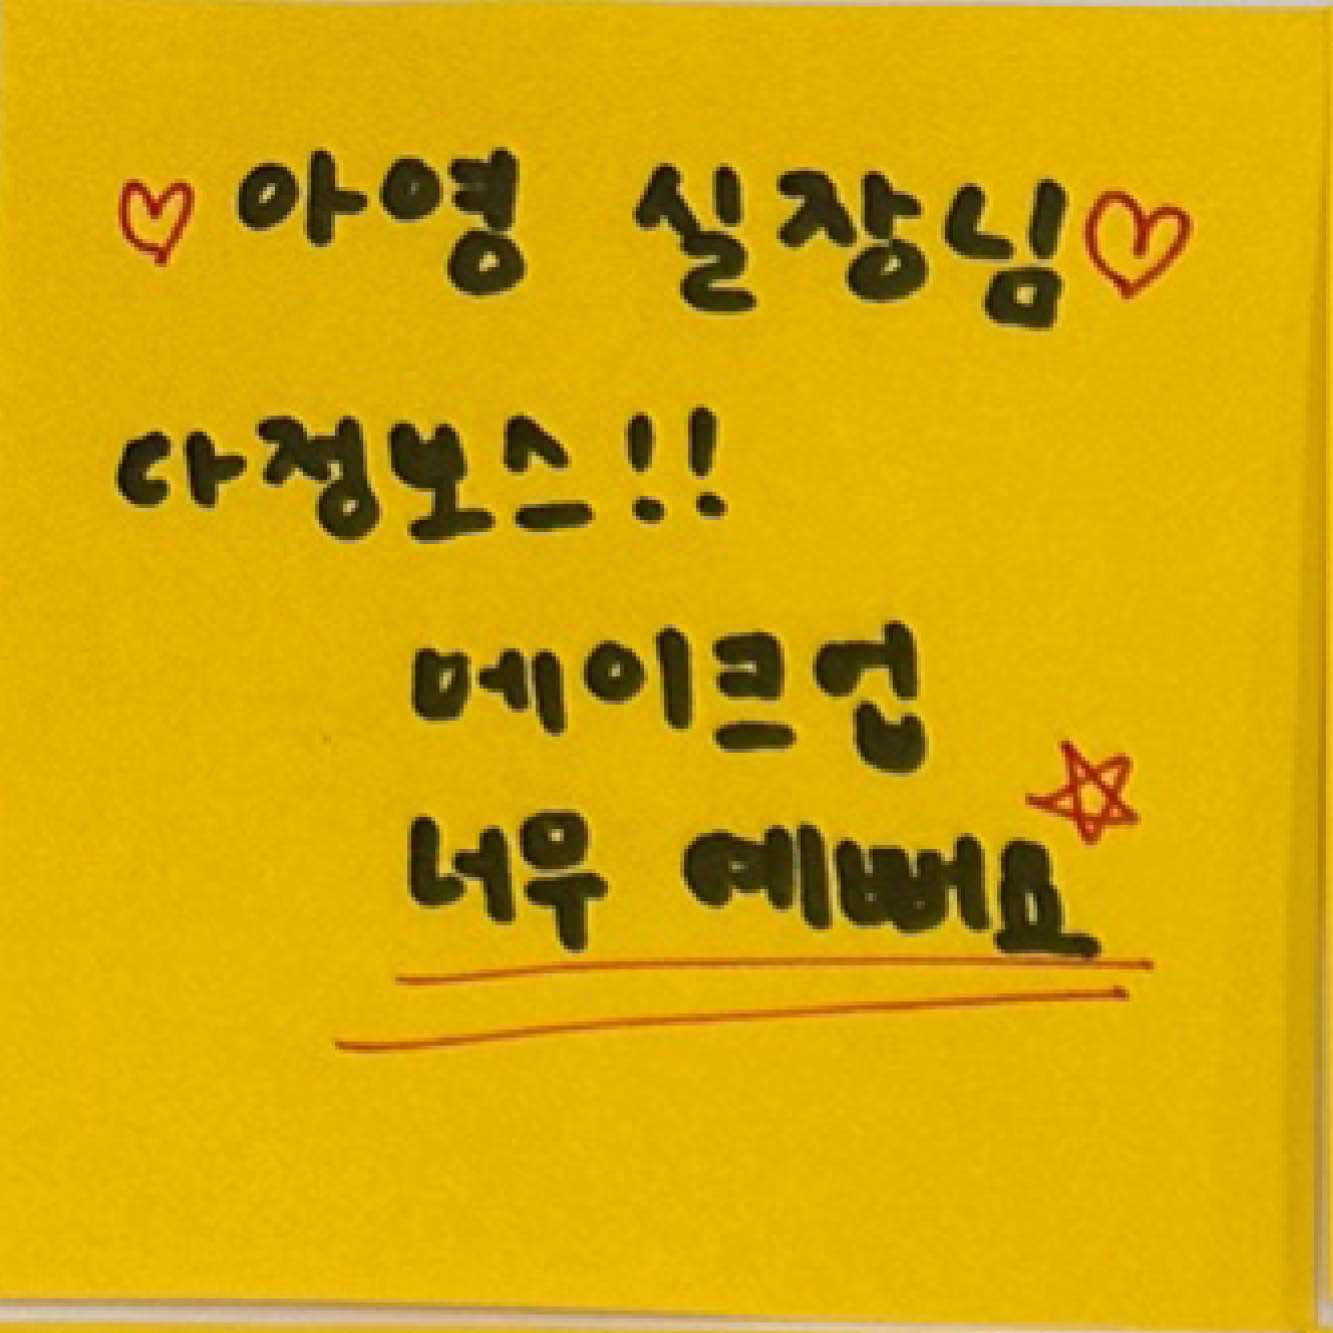 ♡아영 실장님♡
다정보스!!
메이크업
너우 예뻐요☆